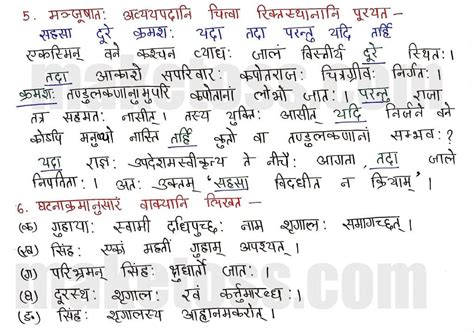 5. मञ्जूषातः अव्ययपदानि चित्वा रिक्तस्थानानि पूरयत -
सहसा दूरे क्रमशः यदा तदा परन्तु यदि तर्हि
एकस्मिन् वने कश्चन व्याधः जालं विस्तीर्य दूरे स्थितः।
तदा आकाशे सपरिवारः कपोतराजः चित्रग्रीवः निर्गतः।
क्रमशः तण्डुलकणानामुपरि कपोतानां लोभो जातः। परन्तु राजा
तत्र सहमतः नासीत्। तस्य युक्तिः आसीत् यदि निर्जने वने
कोऽपि मनुष्यो नास्ति तर्हि कुतो वा तण्डुलकणानां सम्भवः?
यदा राज्ञः उपदेशमस्वीकृत्य ते नीचैः आगता, तदा जाले
निपतिताः। अतः उक्तम् 'सहसा विदधीत न क्रियाम्'।
6. घटनाक्रमानुसारं वाक्यानि लिखत -
(क) गुहायाः स्वामी दधिपुच्छः नाम शृगालः समागच्छत्।
(ख) सिंहः एकां महतीं गुहाम् अपश्यत्।
(ग) परिभ्रमन् सिंहः क्षुधार्तो जातः।
(घ) दूरस्थः शृगालः रवं कर्त्तुमारब्धः।
(ङ) सिंहः शृगालस्य आह्वानमकरोत्।